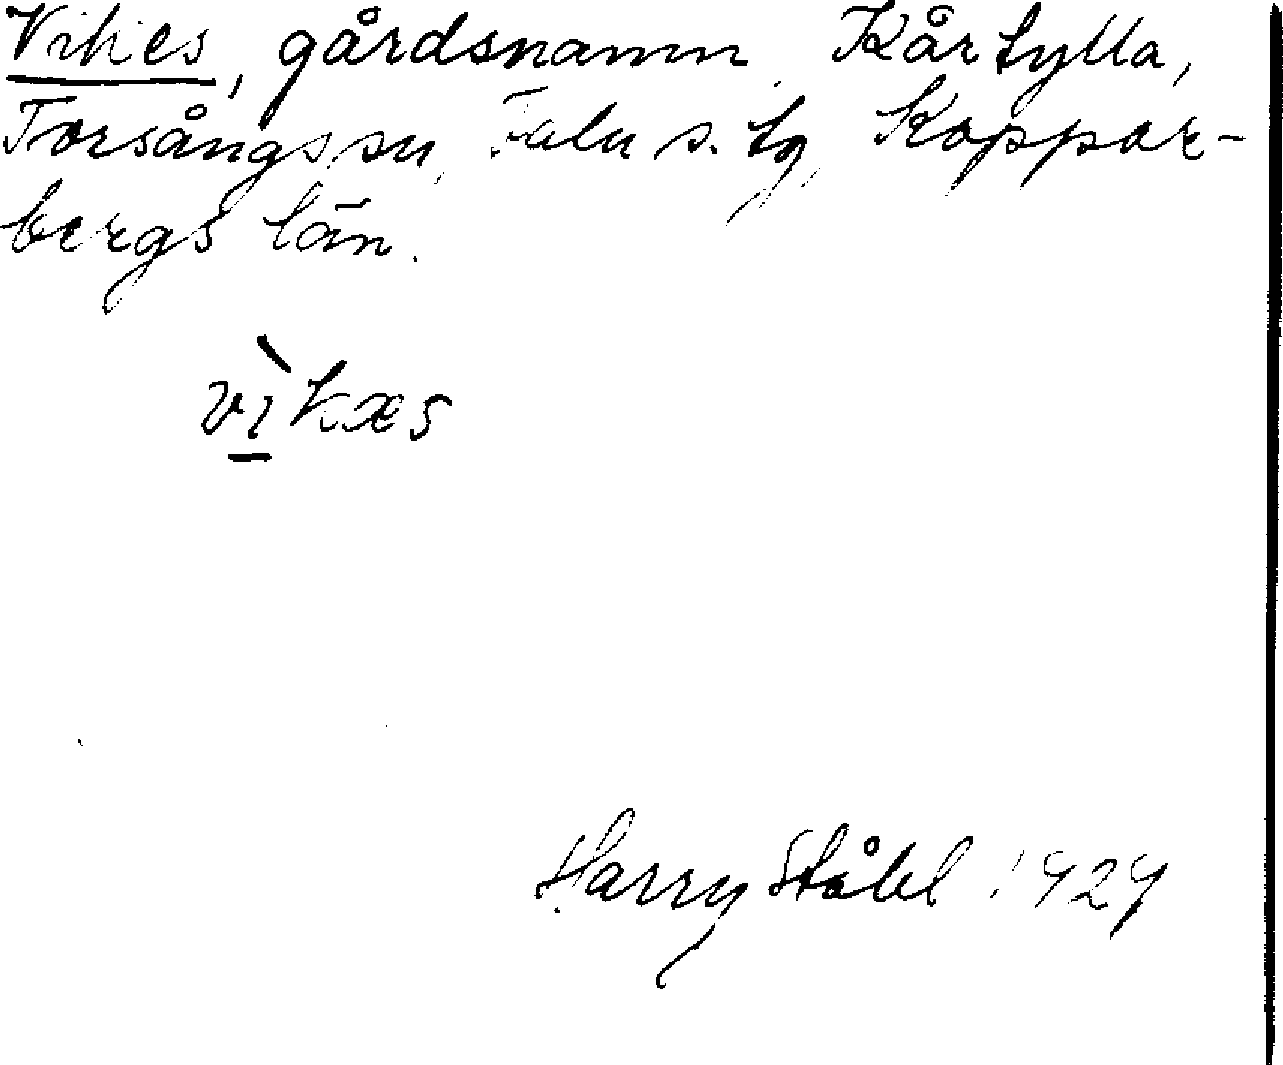 Vikes, gårdsnamn, Kårtylla,
Torsångs sn, Falu s. tg, Koppar-
bergs län.
vìkæs
Harry Ståhl 1929